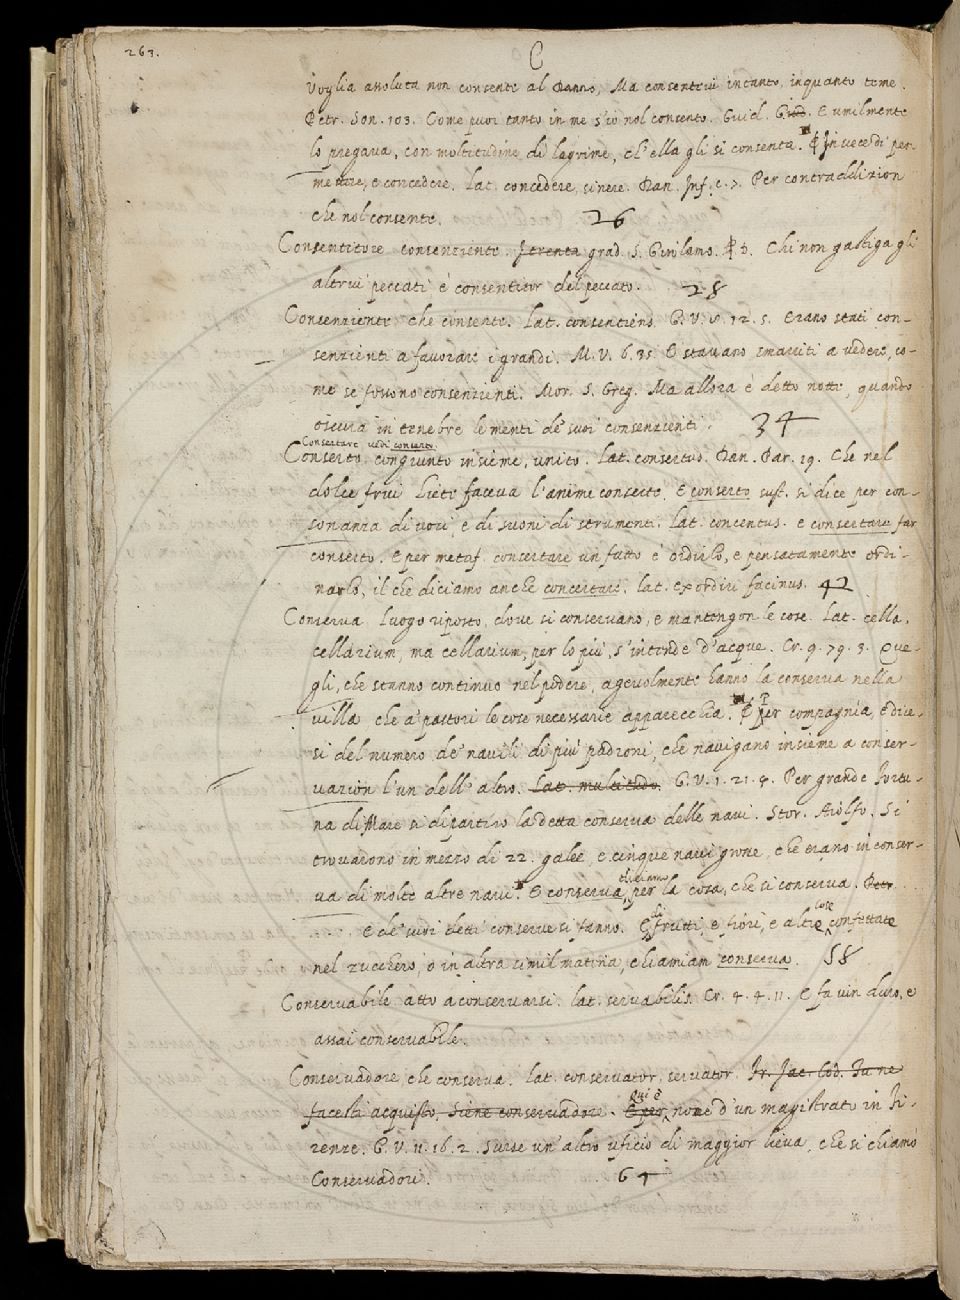 263.
C
Voglia assoluta non consente al Danno, Ma consentevi intanto, inquanto teme.
Petr. Son. 103. Come puoi tanto in me s'io nol consento. Guid. Giud. E umilmente
lo pregava, con moltitudine di lagrime, ch'ella gli si consenta. ¶ In vece di per-
mettere, e concedere. Lat. concedere, sinere. Dan. Inf. c. 7. Per contraddizion
che nol consente. 26
Consentitore consenziente. Trenta grad. S. Girolamo. ¶ 3. Chi non gastiga gli
altrui peccati è consentitor del peccato. 28
Consenziente che consente. Lat. consentiens. G. V. 8. 12. 5. Erano stati con-
senzienti a favorare i grandi. M. V. 6. 35. E stavano smarriti a vedere, co-
me se fossono consenzienti. Mor. S. Greg. Ma allora è detto notte, quando
oscura in tenebre le menti de' suoi consenzienti. 34
Consertare vedi conserto.
Conserto. congiunto insieme, unito. Lat. consertus. Dan. Par. 19. Che nel
dolce frui Liete faceva l'anime conserte. E conserto sust. si dice per con-
sonanza di voci, e di suoni di strumenti. Lat. concentus. e consertare far
conserto. e per metaf. consertare un fatto è ordirlo, e pensatamente ordi-
narlo, il che diciamo anche concertare. lat. exordiri facinus. 42
Conserva Luogo riposto, dove si conservano, e mantengon le cose. Lat. cella,
cellarium, ma cellarium, per lo più, s'intende d'acque. Cr. 9. 79. 3. Que-
gli, che stanno continuo nel podere, agevolmente hanno la conserva nella
villa che a' pastori le cose necessarie apparecchia. ¶ Per compagnia, e dice-
si del numero de' navili di più padroni, che navigano insieme a conser-
vazion l'un dell'altro. Lat. multitudo. G. V. 1. 21. 4. Per grande fortu-
na di Mare si dipartiro la detta conserva delle navi. Stor. Aiolfo. Si
trovarono in mezzo di 22. galee, e cinque navi grosse, che erano in conser-
va di molte altre navi. E conserva, diciamo per la cosa, che si conserva. Petr.
.... E de' suoi detti conserve si fanno. E di frutti, e fiori, e altre cose confettate
nel zucchero, o in altra simil materia, chiamiam conserva. 58
Conservabile atto a conservarsi. lat. servabilis. Cr. 4. 4. 11. E fa vin duro, e
assai conservabile.
Conservadore, che conserva. Lat. conservator, servator. Fr. Jac. Tod. Tu ne
facesti acquisto, Siene conservadore. E per Qui è nome d'un magistrato in Fi-
renze. G. V. 11. 16. 2. Surse un'altro uficio di maggior lieva, che si chiamò
Conservadori. 64